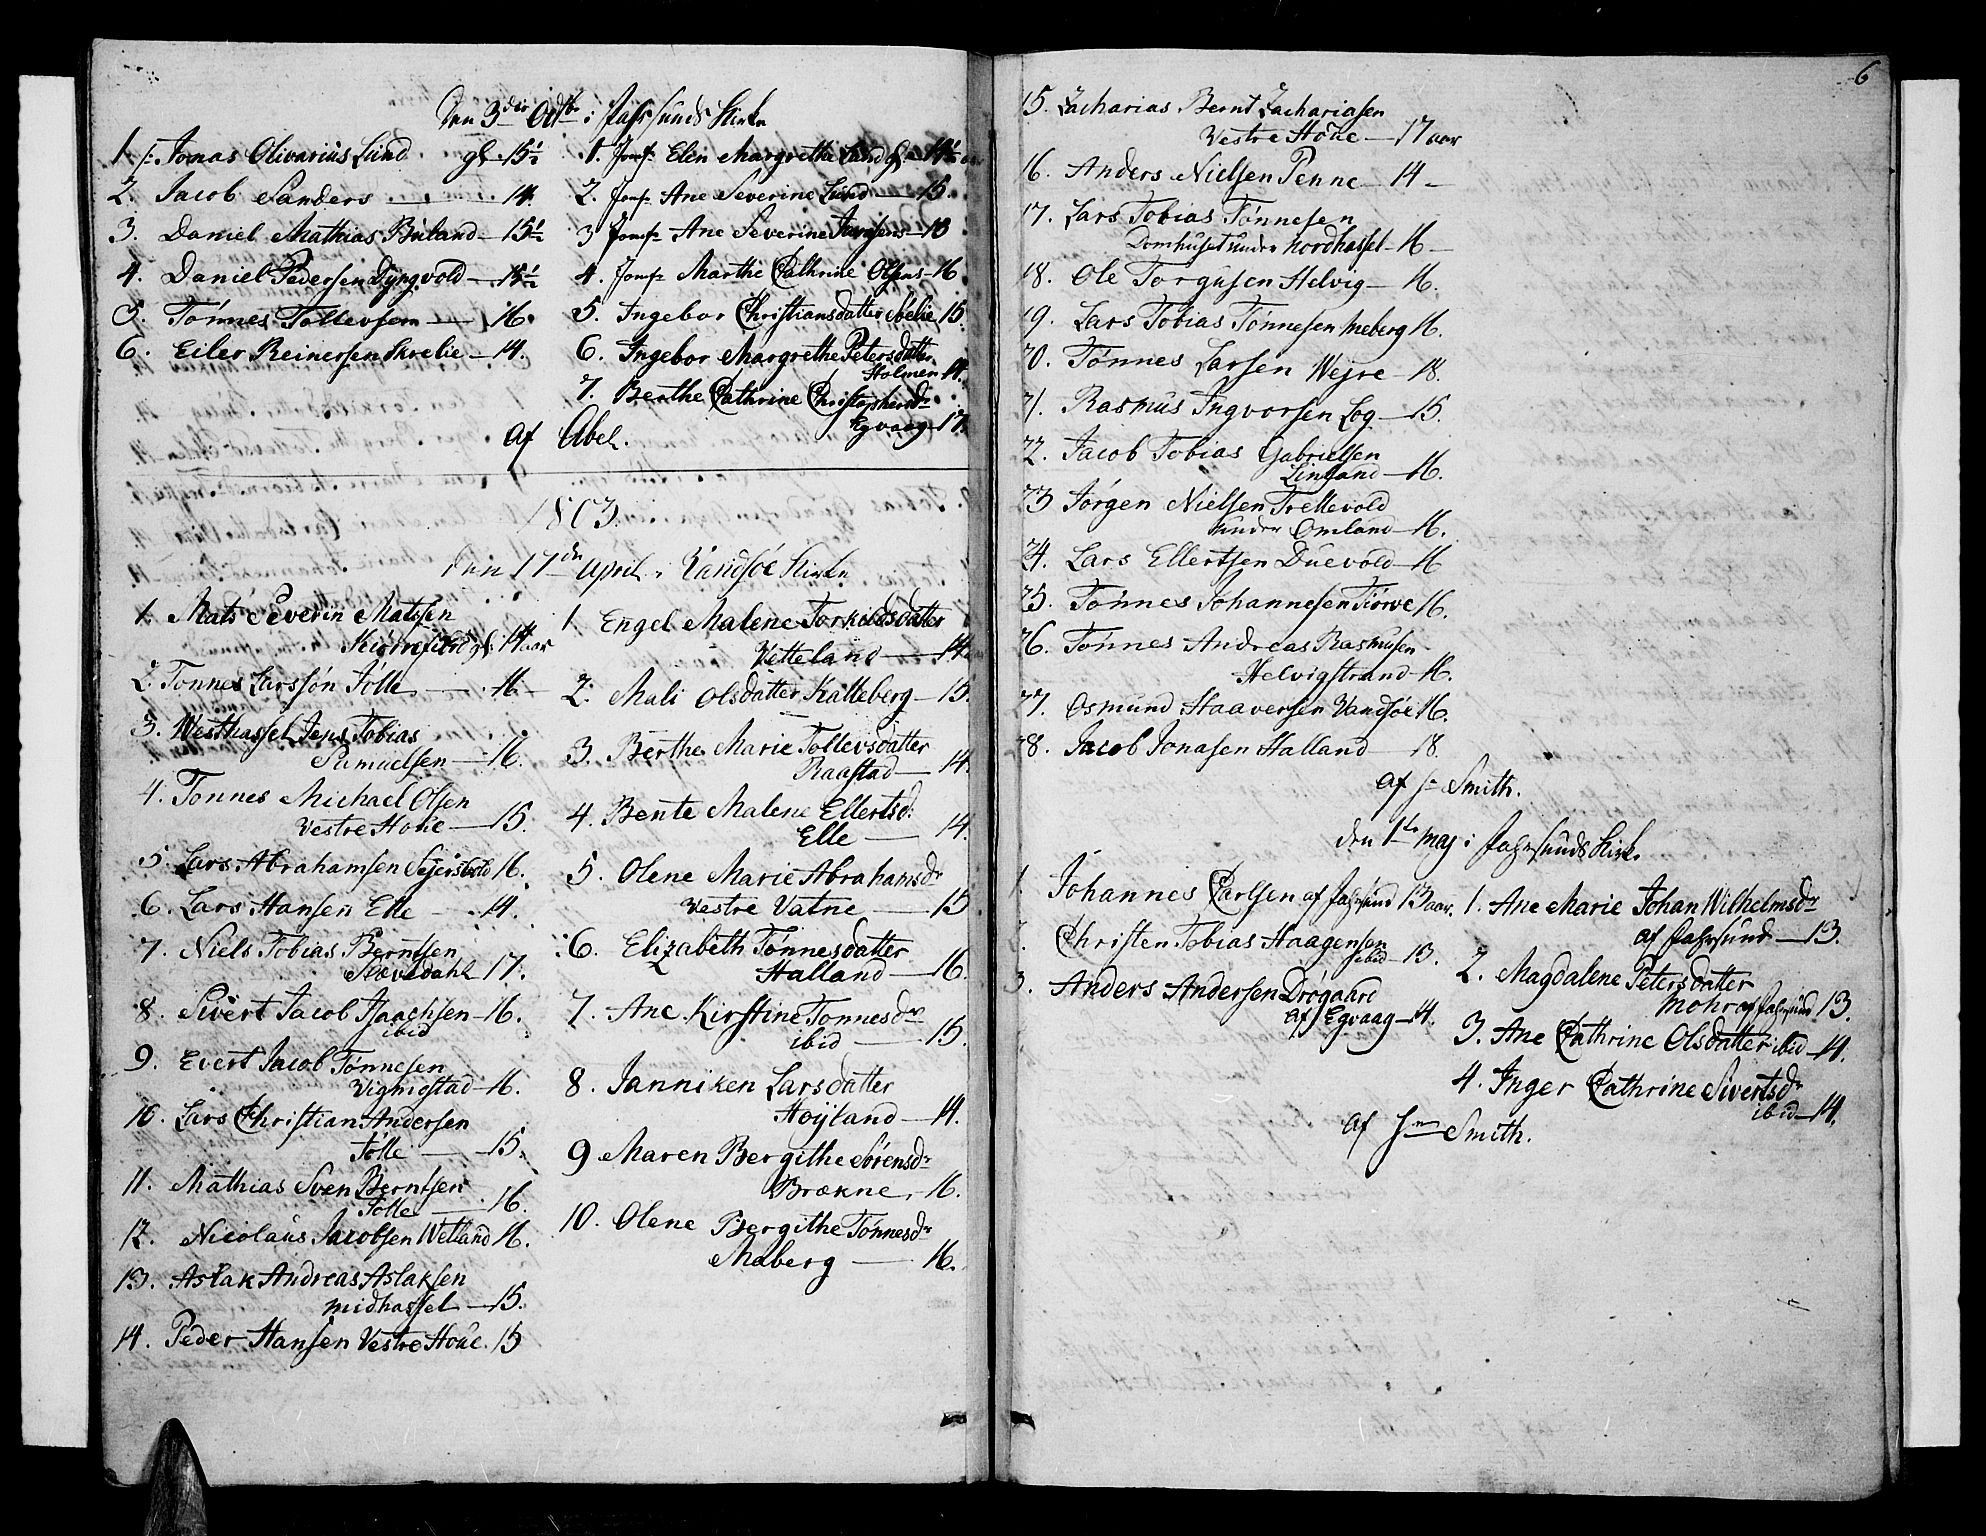 Den 3die Octbr i Fahrsunds Kirke
1 Jonas Olivarius Lund gl. 15½
2. Jacob Sanders 14.
3. Daniel Mathias Buland 15½
4. Daniel Pedersen Dyngvold 15½
5. Tönnes Tollevsen 16.
6. Eiler Reinersen Skrelie 14.
1. Jomf. Elen Margrethe Lund gl. 14½
2. Jomf. Ane Severine Lund 15.
3 Jomf. Ane Severine 13
4. Jomf. Marthe Cathrine Olsens 16
5. Ingebor Christiansdatter 15.
6. Ingebor Margrethe Petersdatter
Holmen 14.
7. Berthe Cathrine Christophersdr
Egvaag 17.
af Abel.
1803.
den 17de April i Vandsöe Kirke
1. Mats Severin Matssen
gl. 14 aar
2. Tonnes Larssön Jölle 16
3. Westhassel Jens Tobias
Samuelsen 16.
4. Tonnes Michael Olsen
Vestre Houe 15.
5. Lars Abrahamsen Sejersvold 16.
6. Lars Hansen Elle 14.
7. Niels Tobias Berntsen
Skevedahl 17.
8. Sivert Jacob Isaachsen 16.
ibid
9. Evert Jacob Tönnesen
Vigmostad 16.
10. Lars Christian Andersen
Jölle 15.
11. Mathias Sven Berntsen
Jölle 16.
12. Nicolaus Jacobsen Wetland 16.
13. Aslak Andreas Aslaksen
midhassel 15.
14. Peder Hansen Vestre Houe. 15
1 Engel Malene Torkildsdatter
Vetteland 14.
2. Mali Olsdatter Kalleberg 15.
3. Berthe Marie Tollevsdatter
Raastad 14.
4. Bente Malene Ellertsd:
Elle 14.
5. Olene Marie Abrahamsdr
Vestre Vatne 15
6. Elizabeth Tönnesdatter
Halland 16.
7. Ane Kirstine Tonnesdr
ibid 15.
8. Janniken Larsdatter
Hoÿland 14.
9 Maren Bergithe Sörensdr
Brækne, 16.
10. Olene Bergithe Tönnesdr
Meberg 16.
6
15. Zacharias Bernt Zachariasen
Vestre Houe 17 aar
16. Anders Nielsen Penne 14
17. Lars Tobias Tönnesen
Domhuset under nordhassel 16
18. Ole Torgusen Helvig 16.
19. Lars Tobias Tönnesen Meberg 16.
20. Tönnes Larsen Wejre 18.
21. Rasmus Ingvorsen Log 15.
22. Jacob Tobias Gabrielsen
Lintand 16.
23 Jörgen Nielsen Trellevold
under Omland 16.
24. Lars Ellertsen Duevold 16
25. Tönnes Johannesen Tiörve 16.
26. Tönnes Andreas Rasmusen
Helvigstrand 16.
27. Osmund Haaversen Vandsöe 16.
28. Jacob Jonasen Halland 18.
af Hr Smith.
den 1te maj i Fahrsunds Kirk.
1. Johannes Carlsen af Fahrsund 13 aar.
Christen Tobias Haagensen
ibid 13.
3. Anders Andersen Drögaard
af Egvaag 14.
1. Ane Marie Johan Wilhelmsdr
af Fahrsund 13.
2. Magdalene Petersdatter
Mohr af Fahrsund 13.
3. Ane Cathrine Olsdatter ibid 14.
4. Inger Cathrine Sivertsdr
ibid 14.
af Hr Smith.